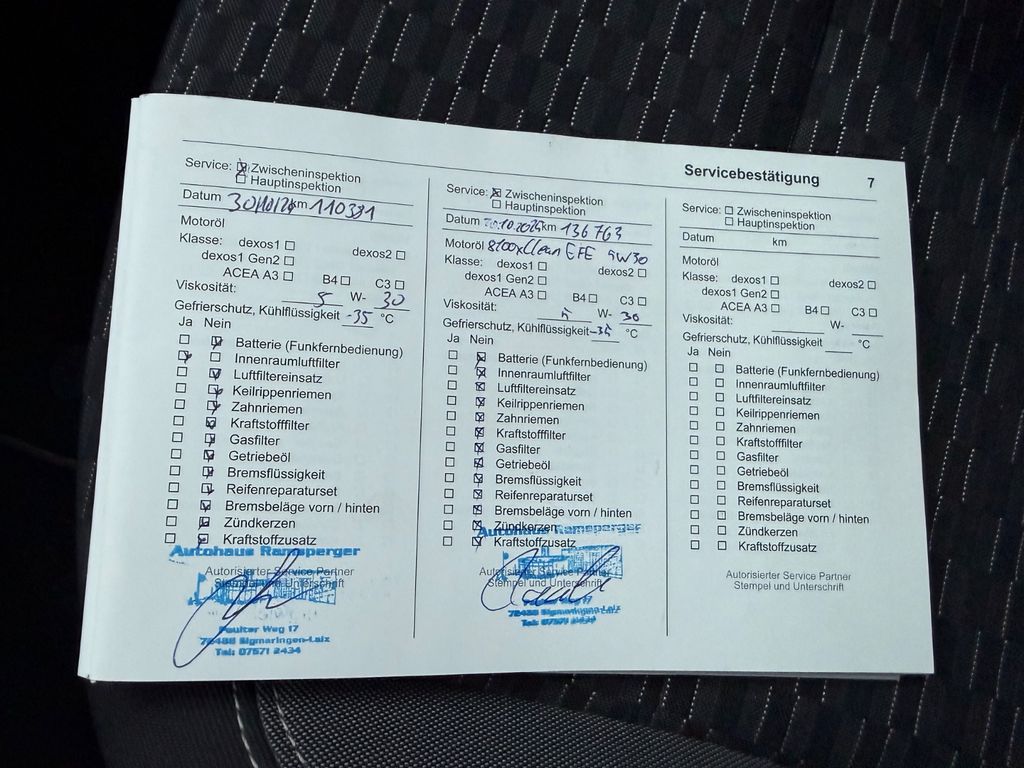 Servicebestätigung 7
Service: Zwischeninspektion
Hauptinspektion
Datum 30/10/24 km 110391
Motoröl
Klasse: dexos1 dexos2
dexos1 Gen2
ACEA A3 B4 C3
Viskosität: 5 W- 30
Gefrierschutz, Kühlflüssigkeit -35 °C
Ja Nein
Batterie (Funkfernbedienung)
Innenraumluftfilter
Luftfiltereinsatz
Keilrippenriemen
Zahnriemen
Kraftstofffilter
Gasfilter
Getriebeöl
Bremsflüssigkeit
Reifenreparaturset
Bremsbeläge vorn / hinten
Zündkerzen
Kraftstoffzusatz
Autohaus Ramsperger
Autorisierter Service Partner
Stempel und Unterschrift
Pault​er Weg 17
72488 Sigmaringen-Laiz
Tel: 07571 2434
Service: Zwischeninspektion
Hauptinspektion
Datum km 136763
Motoröl 8100xClean EFE 5W30
Klasse: dexos1 dexos2
dexos1 Gen2
ACEA A3 B4 C3
Viskosität: 5 W- 30
Gefrierschutz, Kühlflüssigkeit -35 °C
Ja Nein
Batterie (Funkfernbedienung)
Innenraumluftfilter
Luftfiltereinsatz
Keilrippenriemen
Zahnriemen
Kraftstofffilter
Gasfilter
Getriebeöl
Bremsflüssigkeit
Reifenreparaturset
Bremsbeläge vorn / hinten
Zündkerzen
Kraftstoffzusatz
Autohaus Ramsperger
Autorisierter Service Partner
Stempel und Unterschrift
Weg 17
72488 Sigmaringen-Laiz
Tel: 07571 2434
Service: Zwischeninspektion
Hauptinspektion
Datum km
Motoröl
Klasse: dexos1 dexos2
dexos1 Gen2
ACEA A3 B4 C3
Viskosität: W-
Gefrierschutz, Kühlflüssigkeit °C
Ja Nein
Batterie (Funkfernbedienung)
Innenraumluftfilter
Luftfiltereinsatz
Keilrippenriemen
Zahnriemen
Kraftstofffilter
Gasfilter
Getriebeöl
Bremsflüssigkeit
Reifenreparaturset
Bremsbeläge vorn / hinten
Zündkerzen
Kraftstoffzusatz
Autorisierter Service Partner
Stempel und Unterschrift